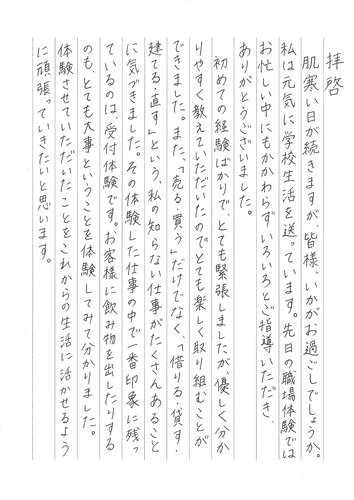 拝啓
肌寒い日が続きますが、皆様、いかがお過ごしでしょうか。
私は元気に学校生活を送っています。先日の職場体験では
お忙しい中にもかかわらず、いろいろとご指導いただき、
ありがとうございました。
初めての経験ばかりで、とても緊張しましたが、優しく分か
りやすく教えていただいたのでとても楽しく取り組むことが
できました。また、「売る・買う」だけでなく、「借りる・貸す・
建てる・直す」という、私の知らない仕事がたくさんあること
に気づきました。その体験した仕事の中で一番印象に残っ
ているのは、受付体験です。お客様に飲み物を出したりする
のも、とても大事ということを体験してみて分かりました。
体験させていただいたことをこれからの生活に活かせるよう
に頑張っていきたいと思います。